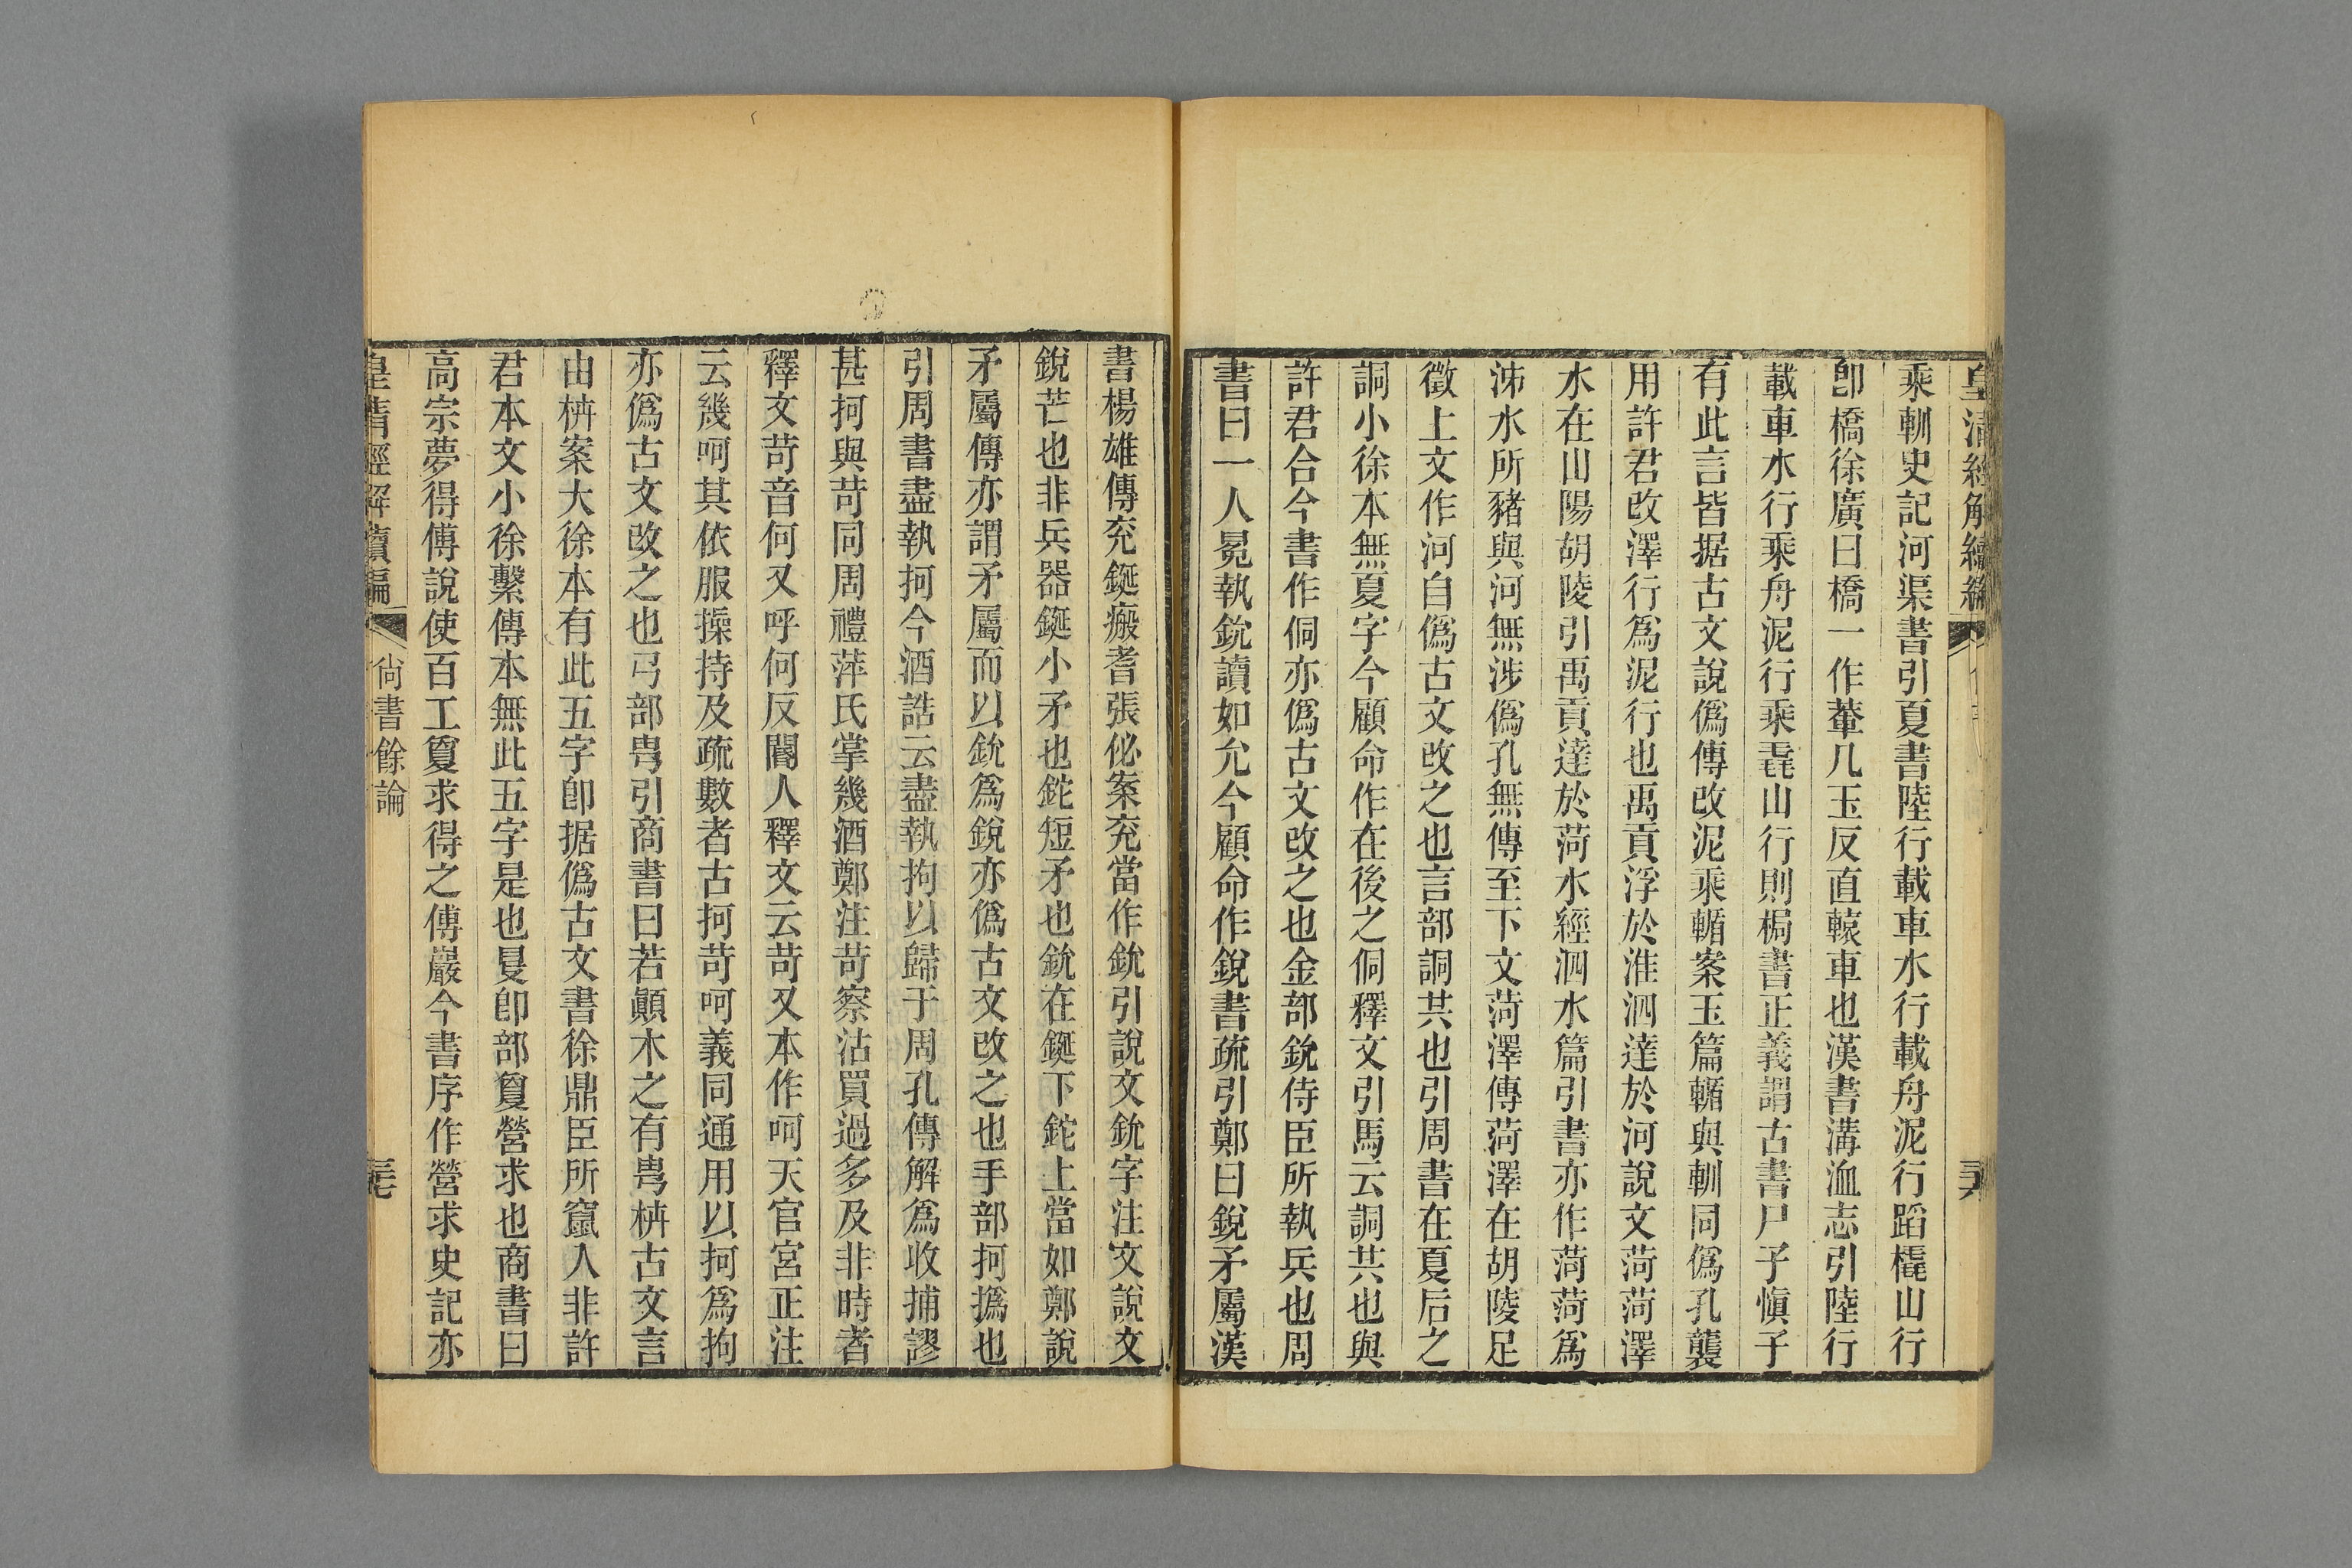 皇清經解續編
乘軕史記河渠書引夏書陸行載車水行載舟泥行蹈橇山行
卽橋徐廣曰橋一作輂几玉反直轅車也漢書溝洫志引陸行
載車水行乘舟泥行乘毳山行則梮書正義謂古書尸子愼子
有此言皆据古文說僞傳改泥乘輴案玉篇輴與軕同僞孔襲
用許君改澤行爲泥行也禹貢浮於淮泗達於河說文菏菏澤
水在山陽胡陵引禹貢達於菏水經泗水篇引書亦作菏菏爲
泲水所豬與河無涉僞孔無傳至下文菏澤傳菏澤在胡陵足
徵上文作河自僞古文改之也言部詷共也引周書在夏后之
詷小徐本無夏字今顧命作在後之侗釋文引馬云詷共也與
許君合今書作侗亦僞古文改之也金部鈗侍臣所執兵也周
書曰一人冕執鈗讀如允今顧命作銳書疏引鄭曰銳矛屬漢
書楊雄傳兖鋋瘢耆張佖案兖當作鈗引說文鈗字注文說文
銳芒也非兵器鋋小矛也鉈短矛也鈗在鋋下鉈上當如鄭說
矛屬傳亦謂矛屬而以鈗爲銳亦僞古文改之也手部抲撝也
引周書盡執抲今酒誥云盡執拘以歸于周孔傳解爲收捕謬
甚抲與苛同周禮萍氏掌幾酒鄭注苛察沽買過多及非時者
釋文苛音何又呼何反閽人釋文云苛又本作呵天官宮正注
云幾呵其依服操持及疏數者古抲苛呵義同通用以抲爲拘
亦僞古文改之也弓部㽕引商書曰若顚木之有㽕枿古文言
由枿案大徐本有此五字卽据僞古文書徐鼎臣所竄入非許
君本文小徐繫傳本無此五字是也㫗卽部敻營求也商書曰
高宗夢得傅說使百工敻求得之傅巖今書序作營求史記亦
皇清經解續編
尙書餘論